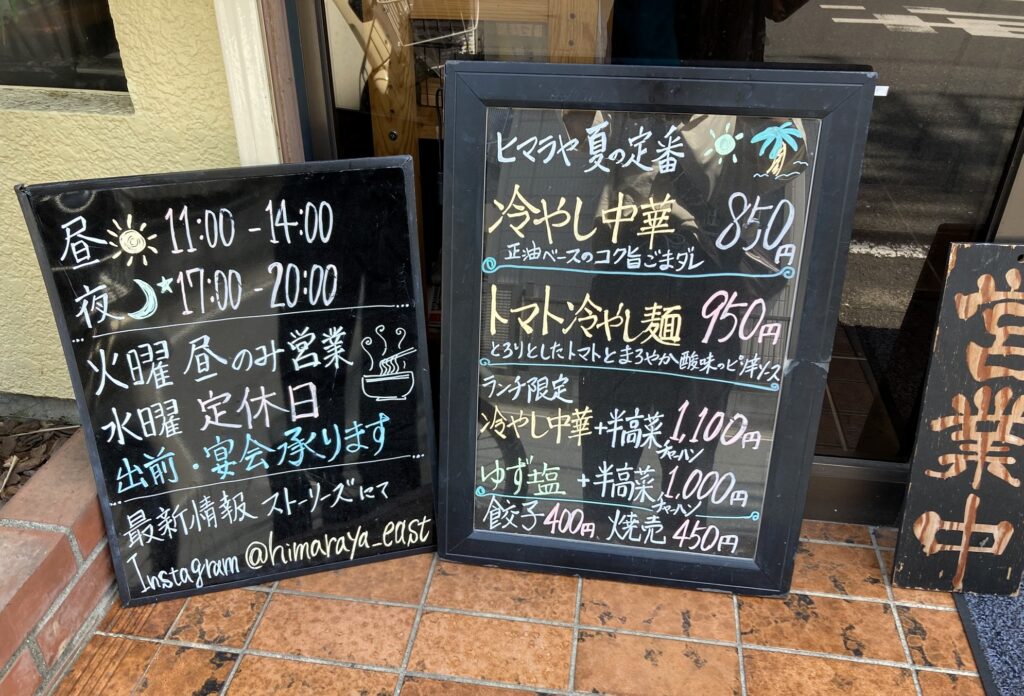 昼 11:00 - 14:00
夜 17:00 - 20:00
火曜 昼のみ営業
水曜 定休日
出前・宴会承ります
最新情報 ストーリーズにて
Instagram @himaraya_east
ヒマラヤ 夏の定番
冷やし中華 850円
正油ベースのコク旨ごまダレ
トマト冷やし麺 950円
とろりとしたトマトとまろやか酸味のピリ辛ソース
ランチ限定
冷やし中華+半高菜チャーハン 1,100円
ゆず塩+半高菜チャーハン 1,000円
餃子400円 焼売450円
営業中